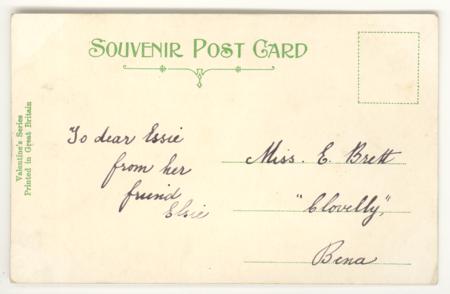 SOUVENIR POST CARD
Valentine's Series
Printed in Great Britain
To dear Essie
from her
friend
Elsie
Miss. E. Brett
"Clovelly",
Bena